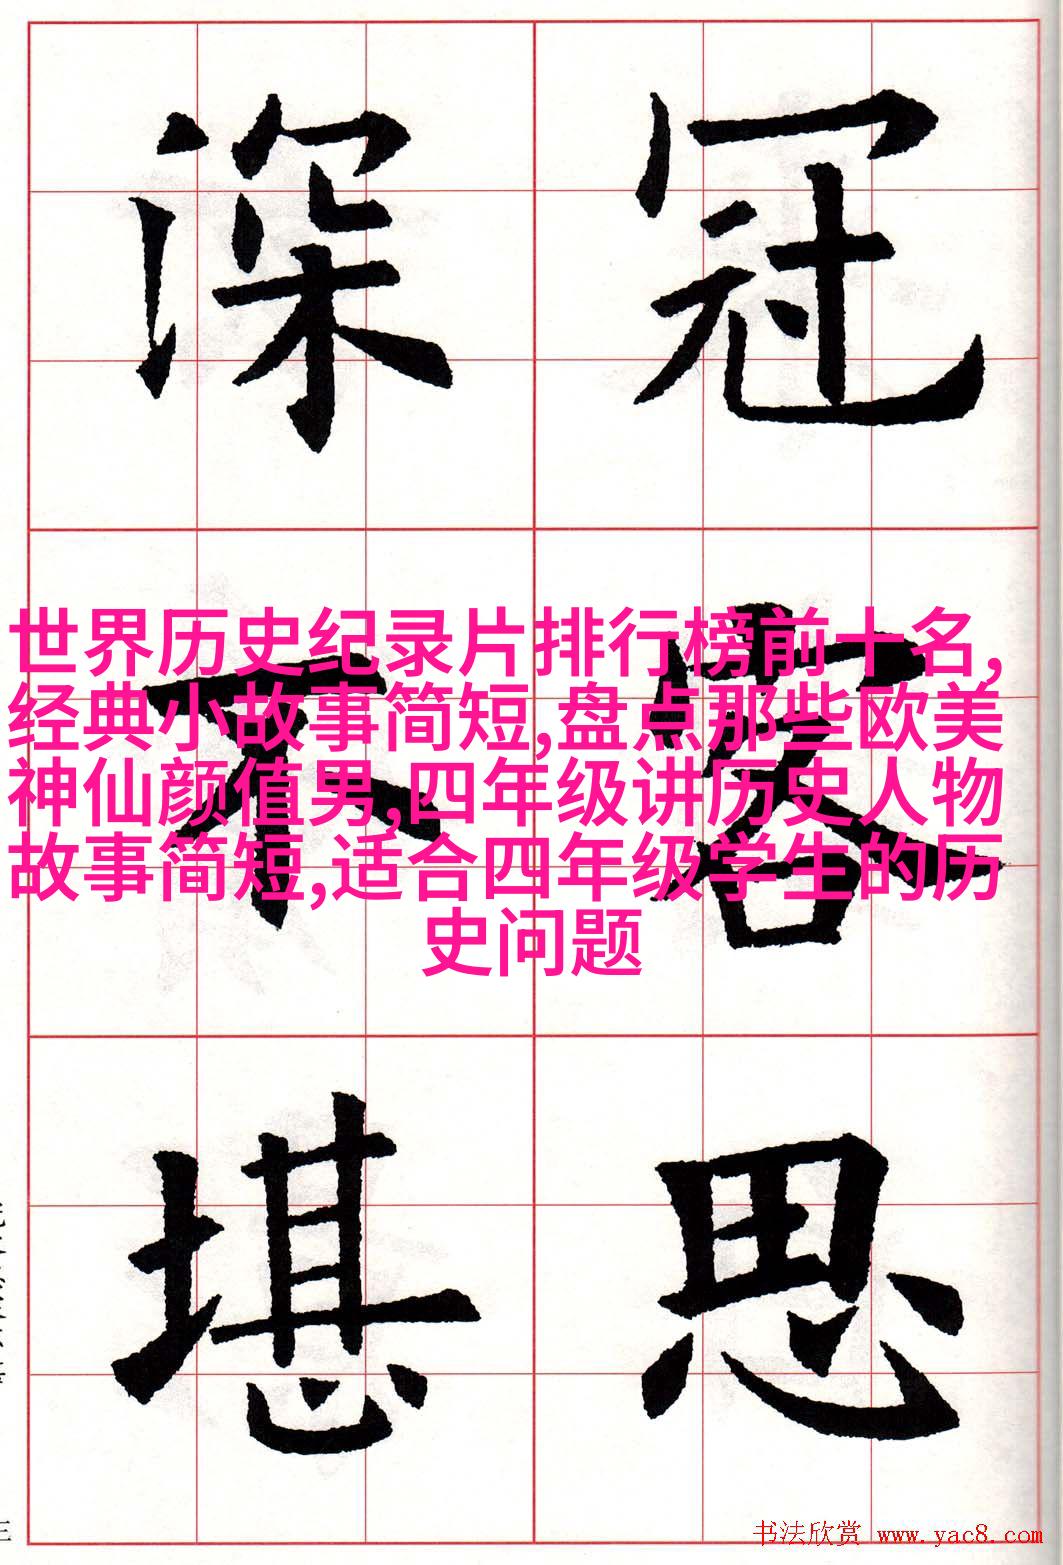 深 冠
世界历史纪录片排行榜前十名,
经典小故事简短,盘点那些欧美
神仙颜值男,四年级讲历史人物
故事简短,适合四年级学生的历
史问题
不 容
堪 思
书法欣赏 www.yac8.com